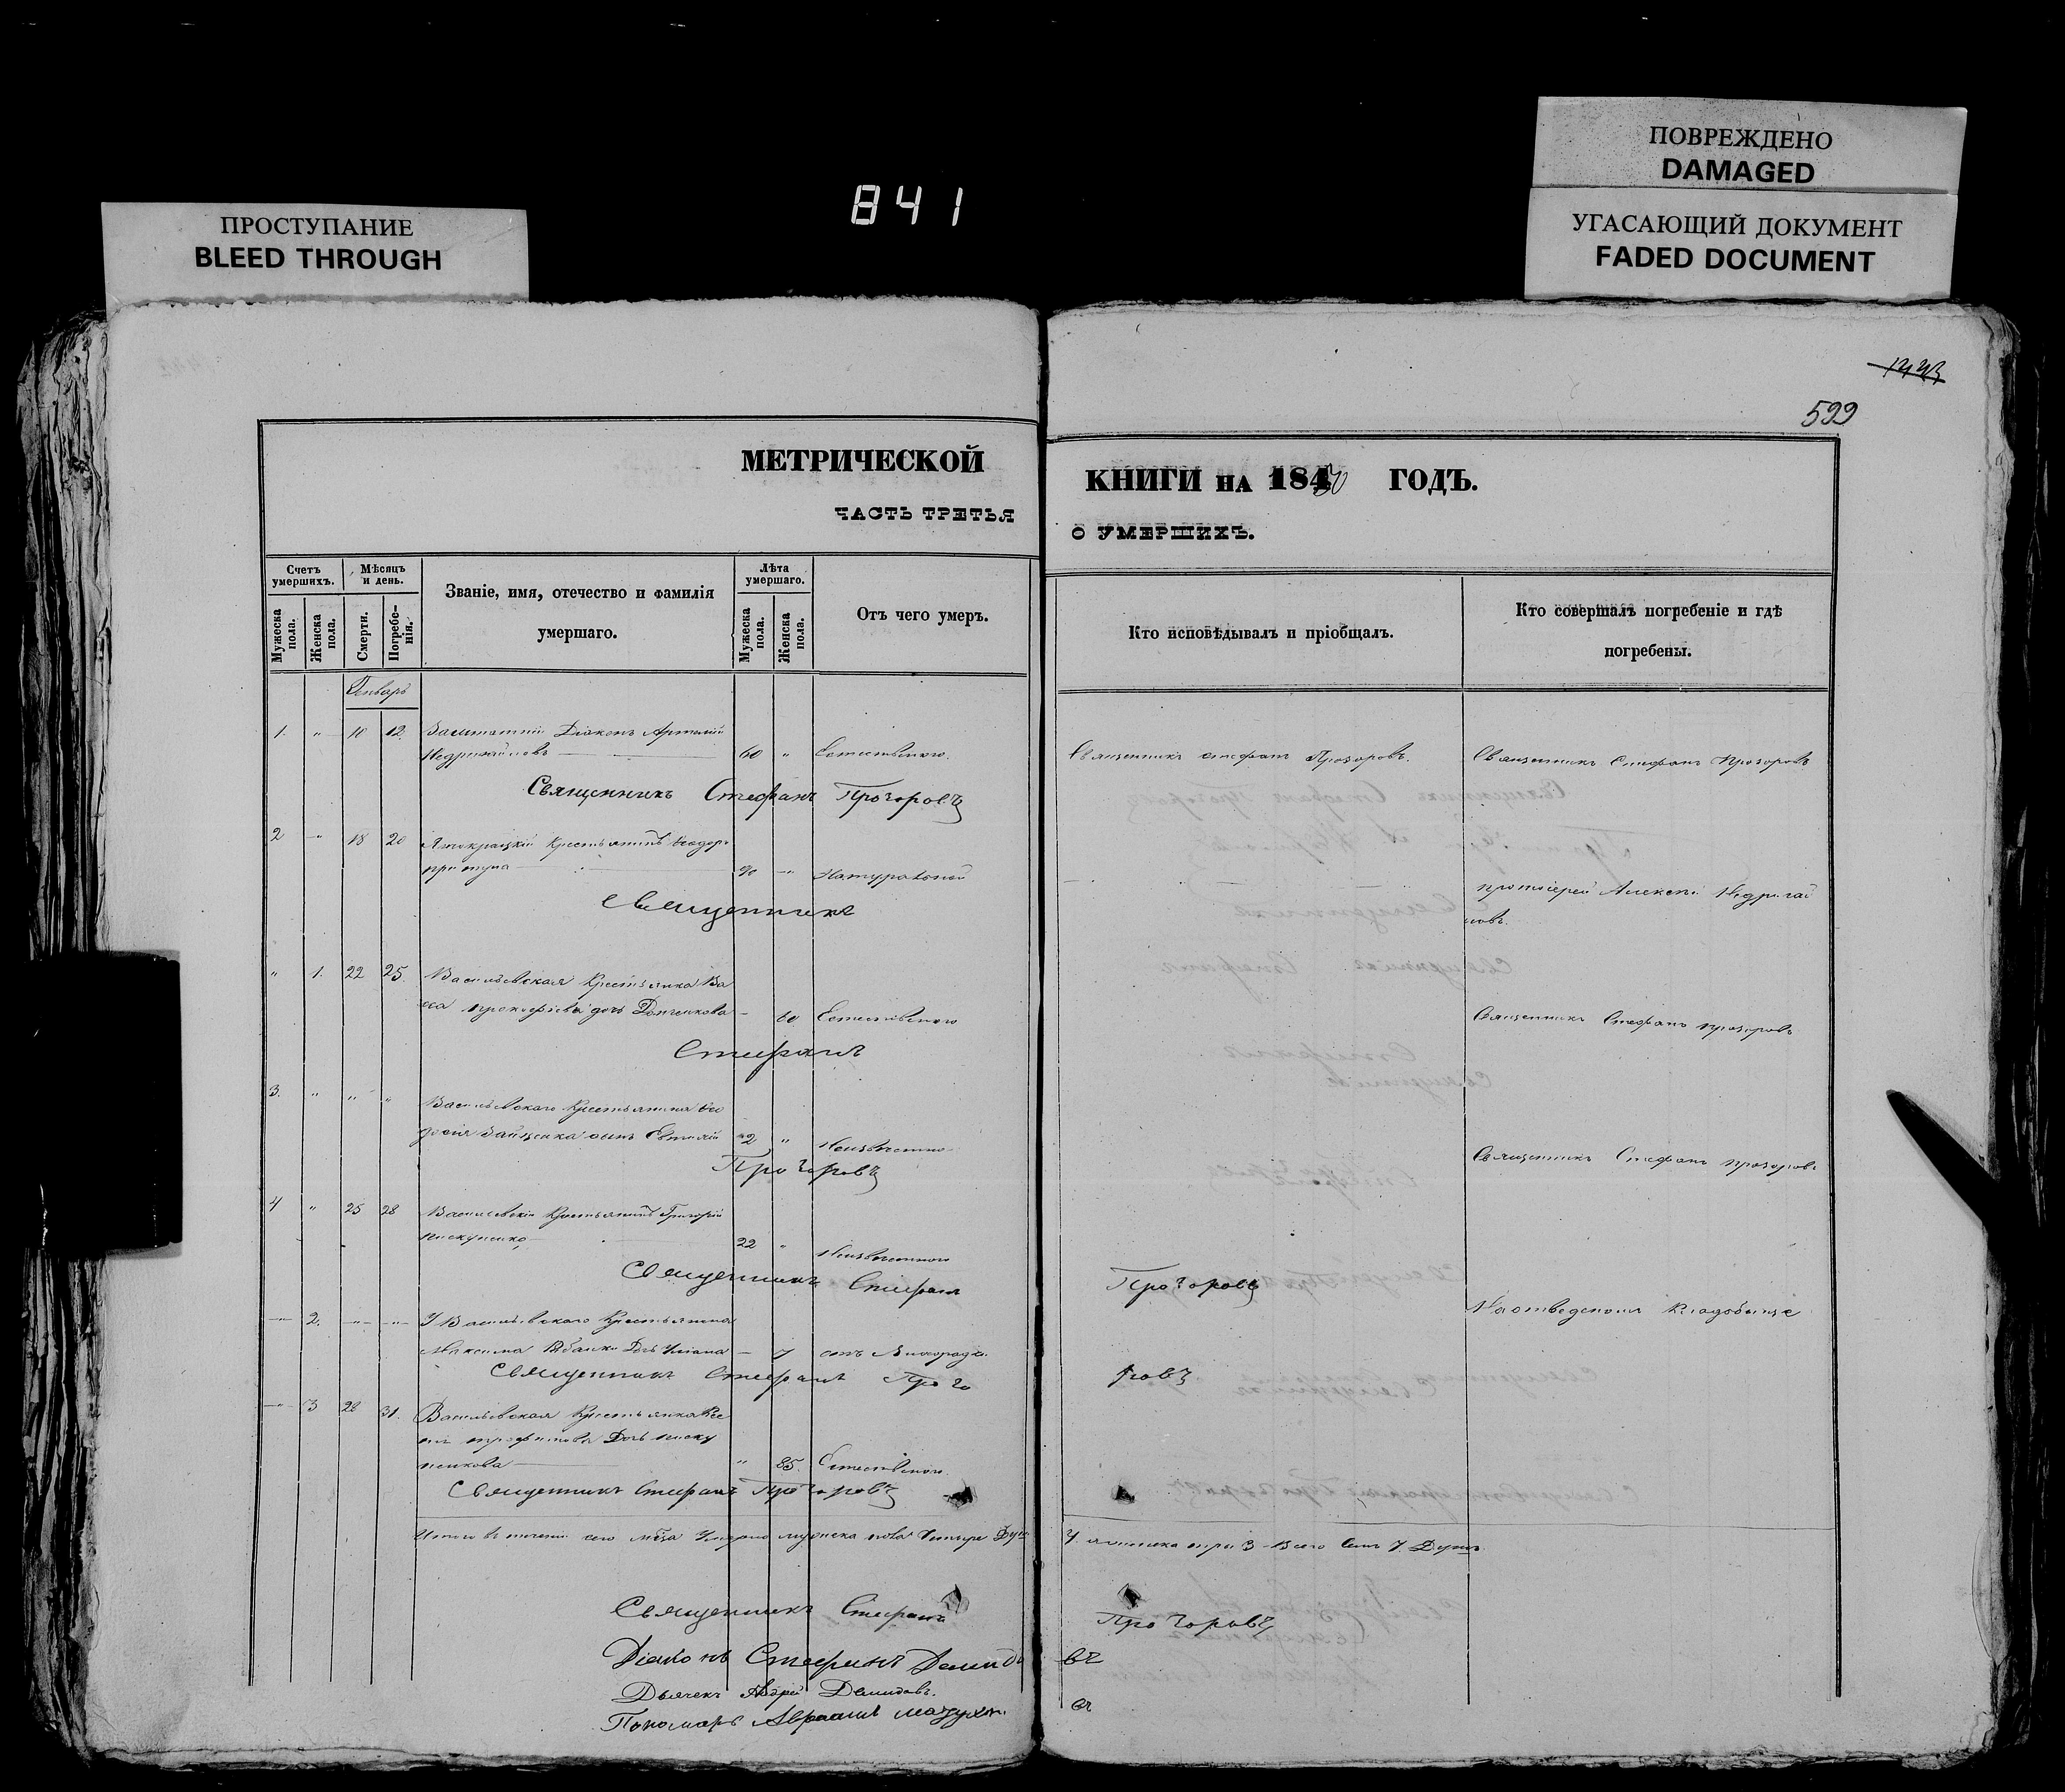 ПОВРЕЖДЕНО
DAMAGED
841
ПРОСТУПАНИЕ
BLEED THROUGH
УГАСАЮЩИЙ ДОКУМЕНТ
FADED DOCUMENT
599
МЕТРИЧЕСКОЙ
ЧАСТЬ ТРЕТЬЯ
КНИГИ НА 1850 ГОДЪ.
О УМЕРШИХЪ.
Счетъ умершихъ.
Мужеска пола.
Женска пола.
Мѣсяцъ и день.
Смерти.
Погребенія.
Званіе, имя, отечество и фамилія
умершаго.
Лѣта умершаго.
Мужеска пола.
Женска пола.
Отъ чего умеръ.
Кто исповѣдывалъ и пріобщалъ.
Кто совершалъ погребеніе и гдѣ
погребены.
Генварь
1. " 10 12. Заштатній Діаконъ Артемій
60 " Естественно. Священникъ Стефанъ Прозоровъ. Священникъ Стефанъ Прозоровъ
Священникъ Стефанъ Прозоровъ
2 " 18 20 Крестьянинъ Феодоръ
притула 90 " Натуральной Протоіерей Алексей Недригай
ловъ.
Священникъ
" 1. 22 25. Васильевская Крестьянка Ва
сса Прокофіева дочь 60 Естественно Священникъ Стефанъ Прозоровъ
Стефанъ
3. " " " Васильевскаго Крестьянина
сынъ Евтихій 2 " Неизвестно Священникъ Стефанъ Прозоровъ
Прозоровъ
4 " 25 28 Васильевскій Крестьянинъ Григорій
Пискуненко 22 " Неизвестно
Священникъ Стефанъ Прозоровъ
" 2. " " У Васильевскаго Крестьянина
Максима Дочь Уліана 7 отъ Лихорадки На отведенномъ Кладобище
Священникъ Стефанъ Прозо ровъ
" 3 28 31. Васильевская Крестьянка Ксе
нія Трофимова Дочь Писку
ненкова " 85. Естественно
Священникъ Стефанъ Прозоровъ
Итого въ течени сего мѣсяца Умерло мужеска пола Четыре Душ 4 женска три 3 Всего Семъ 7 Душъ
Священникъ Стефанъ Прозоровъ
Діаконъ Стефанъ Демидо въ
Дьячекъ Андрей Демидовъ.
Пономарь Авраамъ Мазухи въ